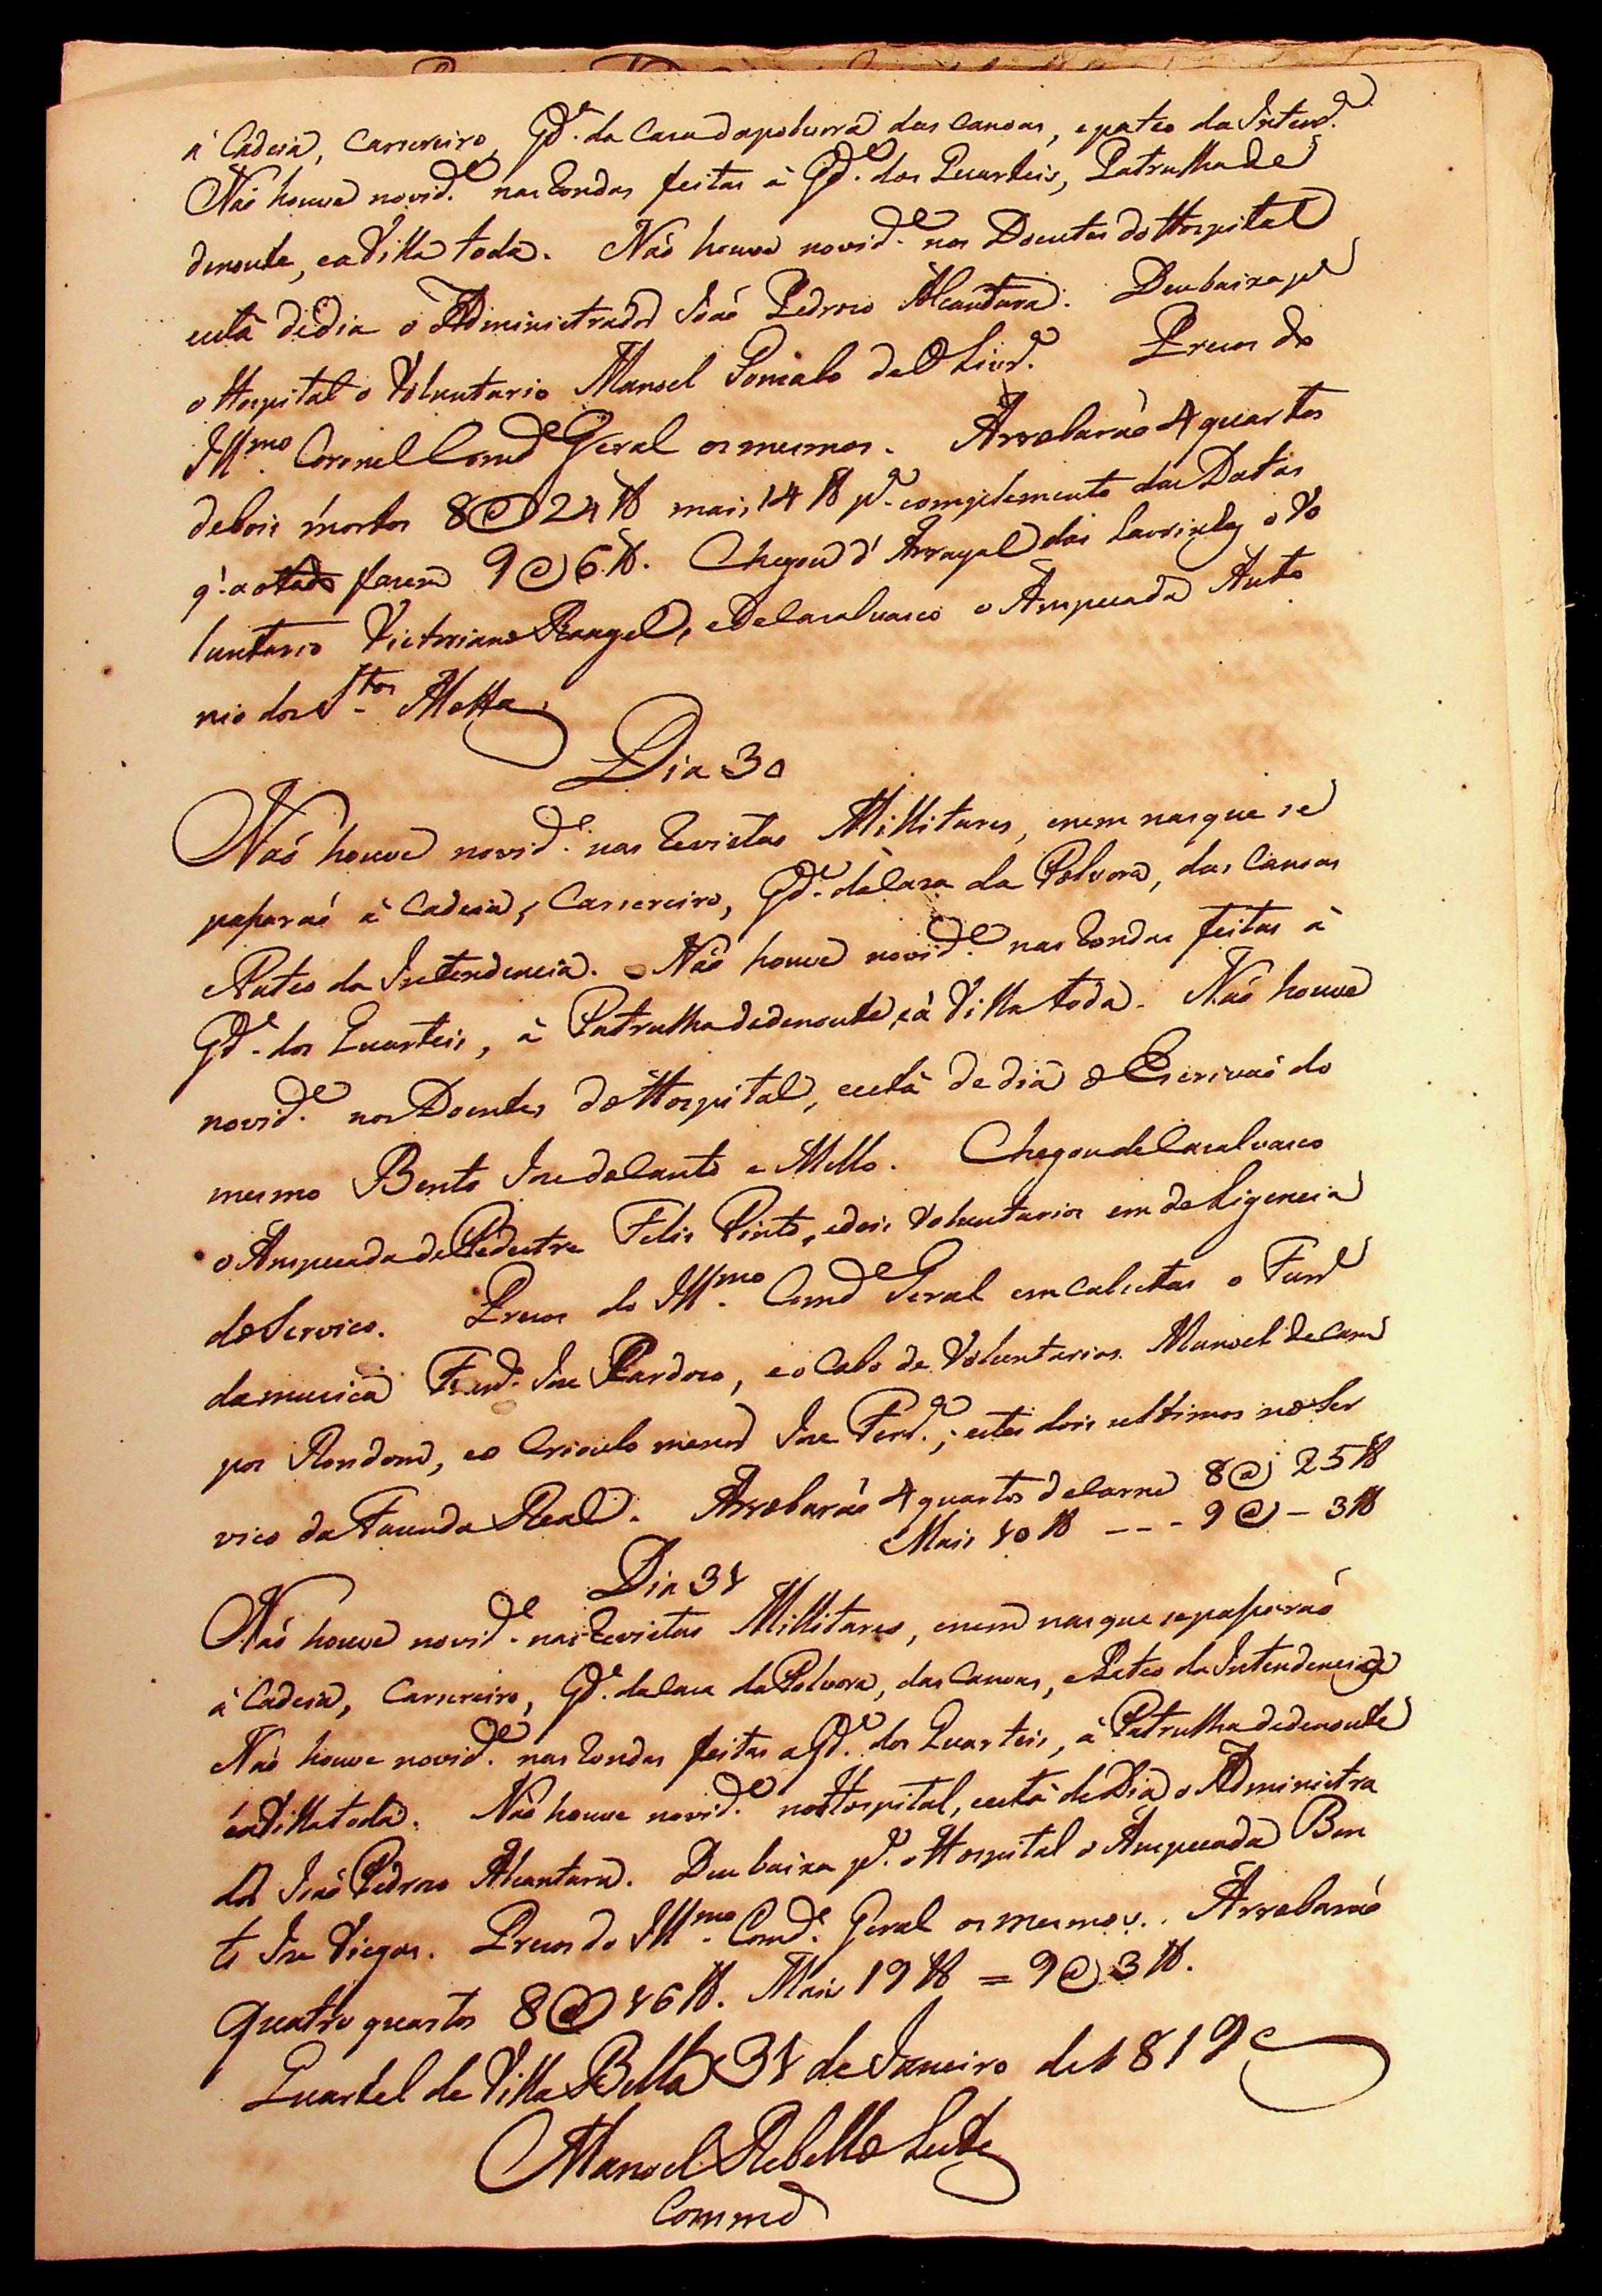 á Cadeia, Carsereiro, Gd.ª da Casa da polvora das canoas, e pateo da Intend.ª
Naó houve novid.e nas rondas feitas á Gd.ª dos Quarteis, Patrulha de
denoute, e a Villa toda. Naó houve novid.e nos Doentes do Hospital
está de dia o Administrador Joaó Pedrozo Alcantara. Deu baixa p.ª
o Hospital o Voluntario Manoel Gonsalo de Olivr.ª Prezos do
Ill.mo Coronel Comd.e Geral os mesmos. Arrobaraó 4 quartos
de bois mortos 8@ 24 lb mais 14 lb p.ª complemento das Datas
q' a otado fazem 9@ 6 lb. Chegou d' Arrayal das Lavrinhas o Vo
luntario Victoriano Rangel, e de Casalvasco o Anspesada Anto
nio dos S.tos Motta.
Dia 30
Naó houve novid.e nas Revistas Millitares, e nem nas que se
passaraó á Cadeia, Carsereiro, Gd.ª da Caza da Polvora, das Canoas
e Pateo da Intendencia. Naó houve novid.e nas rondas feitas á
Gd.ª dos Quarteis, á Patrulha de denoute, e á Villa toda. Naó houve
novid.e nos Doentes do Hospital, está de dia o Escrivaó do
mesmo Bento Joze do Canto e Mello. Chegou de Casalvasco
o Anspesada de Pedestre Felis Pinto, e dois Voluntarios em deligencia
do Servico. Prezos do Ill.mo Comd.e Geral em Calsetas o Fur.el
da musica Ferd.º Joze Cardozo, e o Cabo de Voluntarios Manoel de Cam
pos Rondom, e o Crioulo menor Joze Ferr.ª; estes dois ultimos no Ser
vico da Fazenda Real. Arrobaraó 4 quartos de Carne 8@ 25 lb
Mais 10 lb --- 9@ - 3 lb
Dia 31
Naó houve novid.e nas Revistas Millitares, e nem nas que se passaraó
á Cadeia, Carsereiro, Gd.ª da Casa da Polvora, das Canoas, e Pateo da Intendencia
Naó houve novid.e nas rondas feitas a Gd.ª dos Quarteis, á Patrulha de denoute
e a Villa toda. Naó houve novid.e no Hospital, está de Dia o Administra
dor Joaó Pedrozo Alcantara. Deu baixa p.ª o Hospital o Anspesada Ben
to Joze Viegas. Prezos do Ill.mo Comd.e Geral os mesmos. Arrobaraó
quatro quartos 8@ 16 lb. Mais 19 lb = 9@ 3 lb.
Quartel de Villa Bella 31 de Janeiro de 1819
Manoel Rebello Leite
Commd